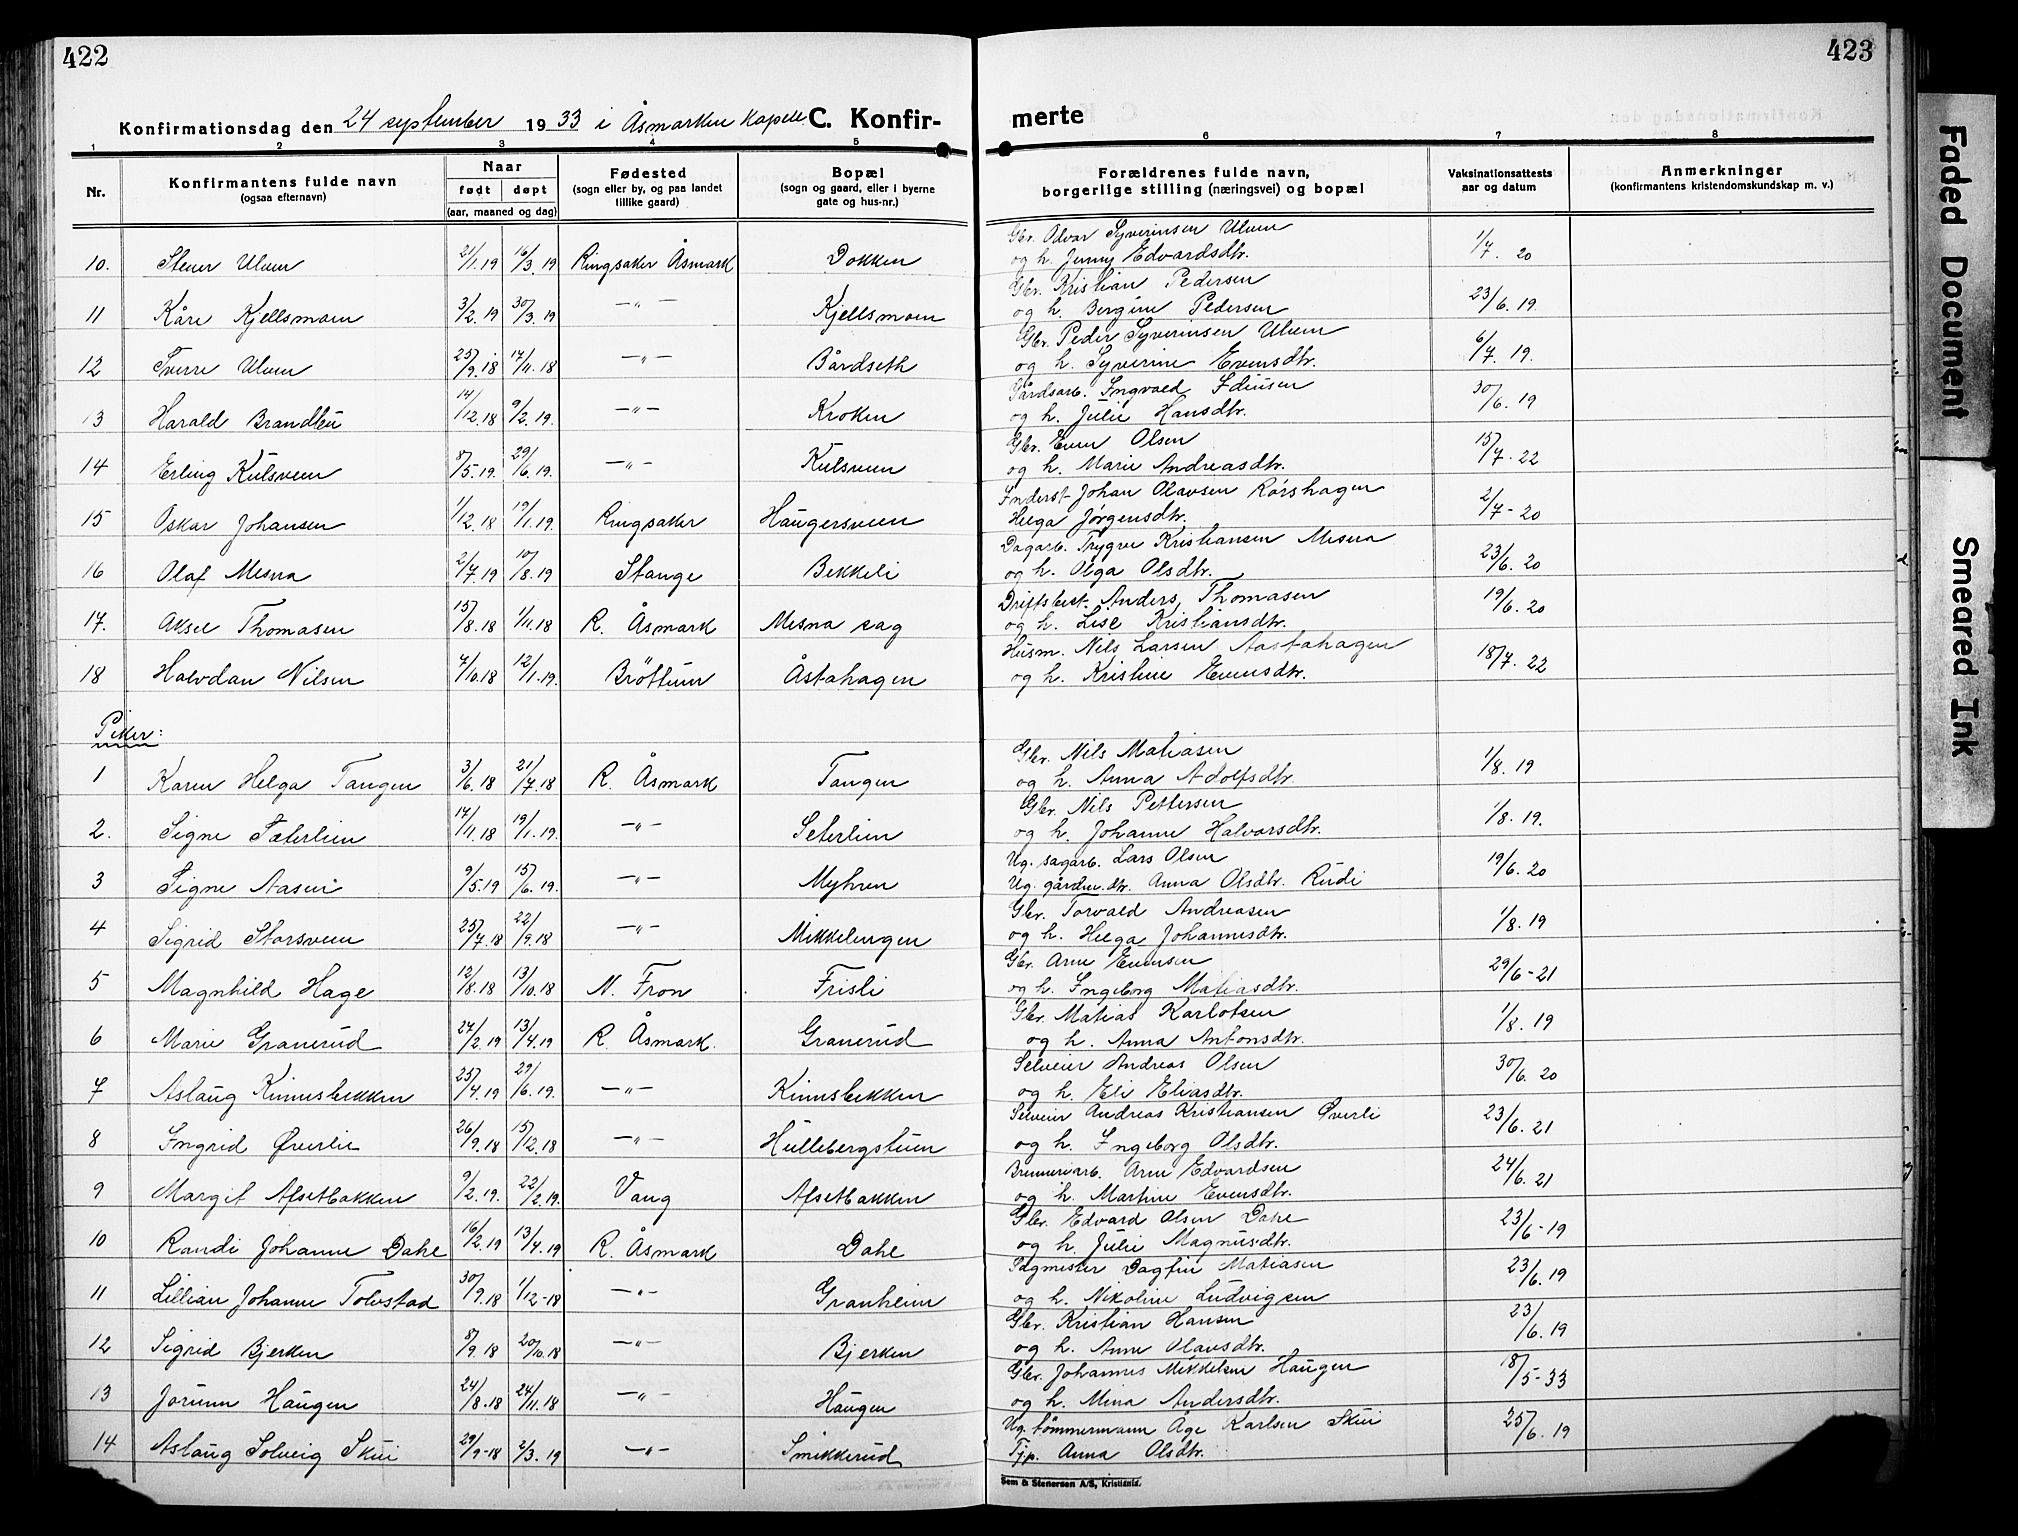 422
423
Konfirmationsdag den 24 september 1933 i Åsmarken Kapell. C. Konfir-
merte
1 2 3 4 5
6 7 8
Nr.
Konfirmantens fulde navn
(ogsaa efternavn)
Naar
født døpt
(aar, maaned og dag)
Fødested
(sogn eller by, og paa landet
tillike gaard)
Bopæl
(sogn og gaard, eller i byerne
gate og hus-nr.)
Forældrenes fulde navn,
borgerlige stilling (næringsvei) og bopæl
Vaksinationsattests
aar og datum
Anmerkninger
(konfirmantens kristendomskundskap m. v.)
Gbr. Odvar Syverinsen Ulven
10. Stener Ulven 21/1.19 16/3.19 Ringsaker Åsmark Dokken og h. Jenny Edvardsdtr. 1/7. 20
Gbr. Kristian Pedersen
11 Kåre Kjellsmoen 3/2.19 30/3.19 —"— Kjellsmoen og h. Bergine Pedersen 23/6.19.
Gbr. Peder Syverinsen Ulven
12 Sverre Ulven 25/9.18 17/11.18 —"— Bårdseth og h. Syverine Evensdtr. 6/7. 19.
Gårdsarb. Ingvald Edinsen
13 Harald Brandlu 14/12.18 9/2.19. —"— Kroken og h. Julie Hansdtr. 30/6.19
Gbr. Even Olsen
14 Erling Kulsveen 8/5.19. 29/6.19. —"— Kulsveen og h. Marie Andreasdtr. 15/7.22
Inderst Johan Olavsen Rørshagen
15 Oskar Johansen 1/12.18 19/1.19. Ringsaker Haugersveen Helga Jørgensdtr. 2/7-20
Dagarb. Trygve Kristiansen Mesna
16 Olaf Mesna 2/7.19 10/8.19 Stange Bekkeli og h. Olga Olsdtr. 23/6.20
Driftsbest. Anders Thomasen
17. Aksel Thomasen 15/8.18 1/11.18 R. Åsmark Mesna sag og h. Lise Kristiansdtr. 19/6.20
Husm. Nils Larsen Aastahagen
18 Halvdan Nilsen 7/10.18 12/1.19. Brøttum Åstahagen og h. Kristine Evensdtr. 18/7.22
Piker:
Gbr. Nils Matiasen
1 Karen Helga Tangen 3/6.18 21/7.18 R. Åsmark Tangen og h. Anna Adolfsdtr. 1/8.19
Gbr. Nils Pettersen
2. Signe Sæterlien 17/11.18 19/1.19. —"— Seterlien og h. Johanne Halvorsdtr. 1/8.19.
Ug. sagarb. Lars Olsen
3 Signe Aasen 9/5.19 15/6.19. —"— Myhren Ug. gårdm.dtr. Anna Olsdtr. Rudi 19/6.20
Gbr. Torvald Andreasen
4 Sigrid Storsveen 25/7.18 22/9.18 —"— Mikkelengen og h. Helga Johannesdtr. 1/8.19
Gbr. Arne Evensen
5 Magnhild Hage 12/8.18 13/10.18 N. Fron Frisli og h. Ingeborg Matiasdtr. 29/6-21
Gbr. Matias Karlotsen
6 Marie Granerud 27/2.19 13/4.19 R. Åsmark. Granerud og h. Anna Antonsdtr. 1/8.19
Selveier Andreas Olsen
7 Aslaug Kinnsbekken 25/4.19 29/6.19. —"— Kinnsbekken og h. Eli Eliasdtr. 30/6.20
Selveier Andreas Kristiansen Øverli
8 Ingrid Øverlie 26/9.18 15/12.18 —"— Hullebergstuen og h. Ingeborg Olsdtr. 23/6.21
Brenneriarb. Arne Edvardsen
9 Margit Alsetbakken 9/2.19. 22/2.19. Vang Alsetbakken og h. Martine Evensdtr. 24/6.21
Gbr. Edvard Olsen Dahe
10 Randi Johanne Dahe 16/2.19 13/4.19 R. Åsmark Dahe og h. Julie Magnusdtr. 23/6-19
Sagmester Dagfin Matiasen
11 Lillian Johanne Tolvstad 30/9.18 1/12-18 —"— Granheim og h. Nikoline Ludvigsen 23/6.19
Gbr. Kristian Hansen
12 Sigrid Bjerken 8/9.18 20/10.18 —"— Bjerken og h. Anne Olavsdtr. 23/6.19
Gbr. Johannes Mikkelsen Haugen
13 Jorunn Haugen 24/8.18 24/11.18 —"— Haugen og h. Mina Andersdtr. 18/5-33
Ug. tømmermann Åge Karlsen Skui
14 Aslaug Solveig Skui 29/9-18 2/3.19 —"— Smikkerud Tjp. Anna Olsdtr. 25/6.19
Sem & Stenersen A/S, Kristiania.
Faded Document
Smeared Ink